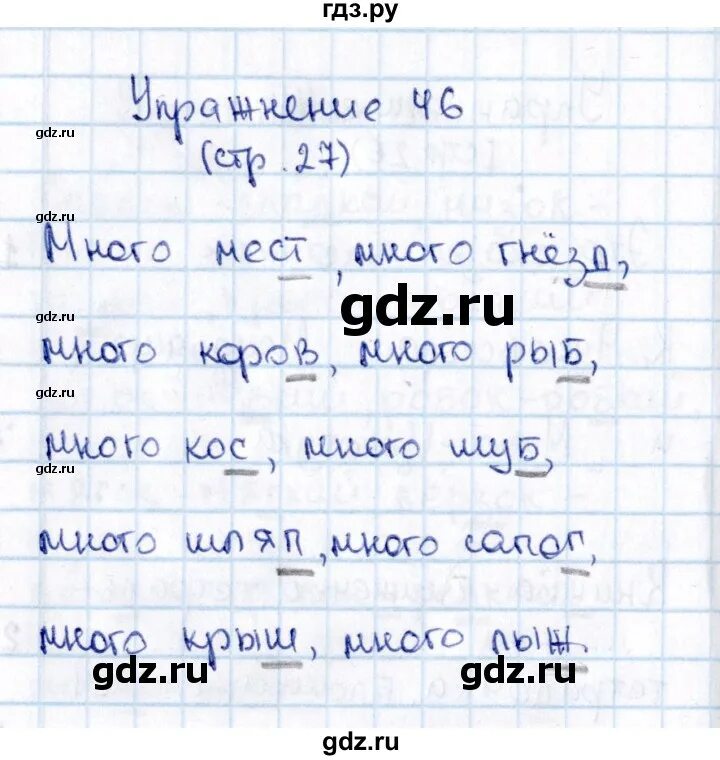 гдз.ру
Упражнение 46
gdz.ru
(стр. 27)
gdz.ru
Много мест, много гнёзд,
gdz.ru
gdz.ru
много коров, много рыб,
gdz.ru
много кос, много шуб,
gdz.ru
много шляп, много сапог,
gdz.ru
много крыш, много лыж.
gdz.ru
gdz.ru
gdz.ru